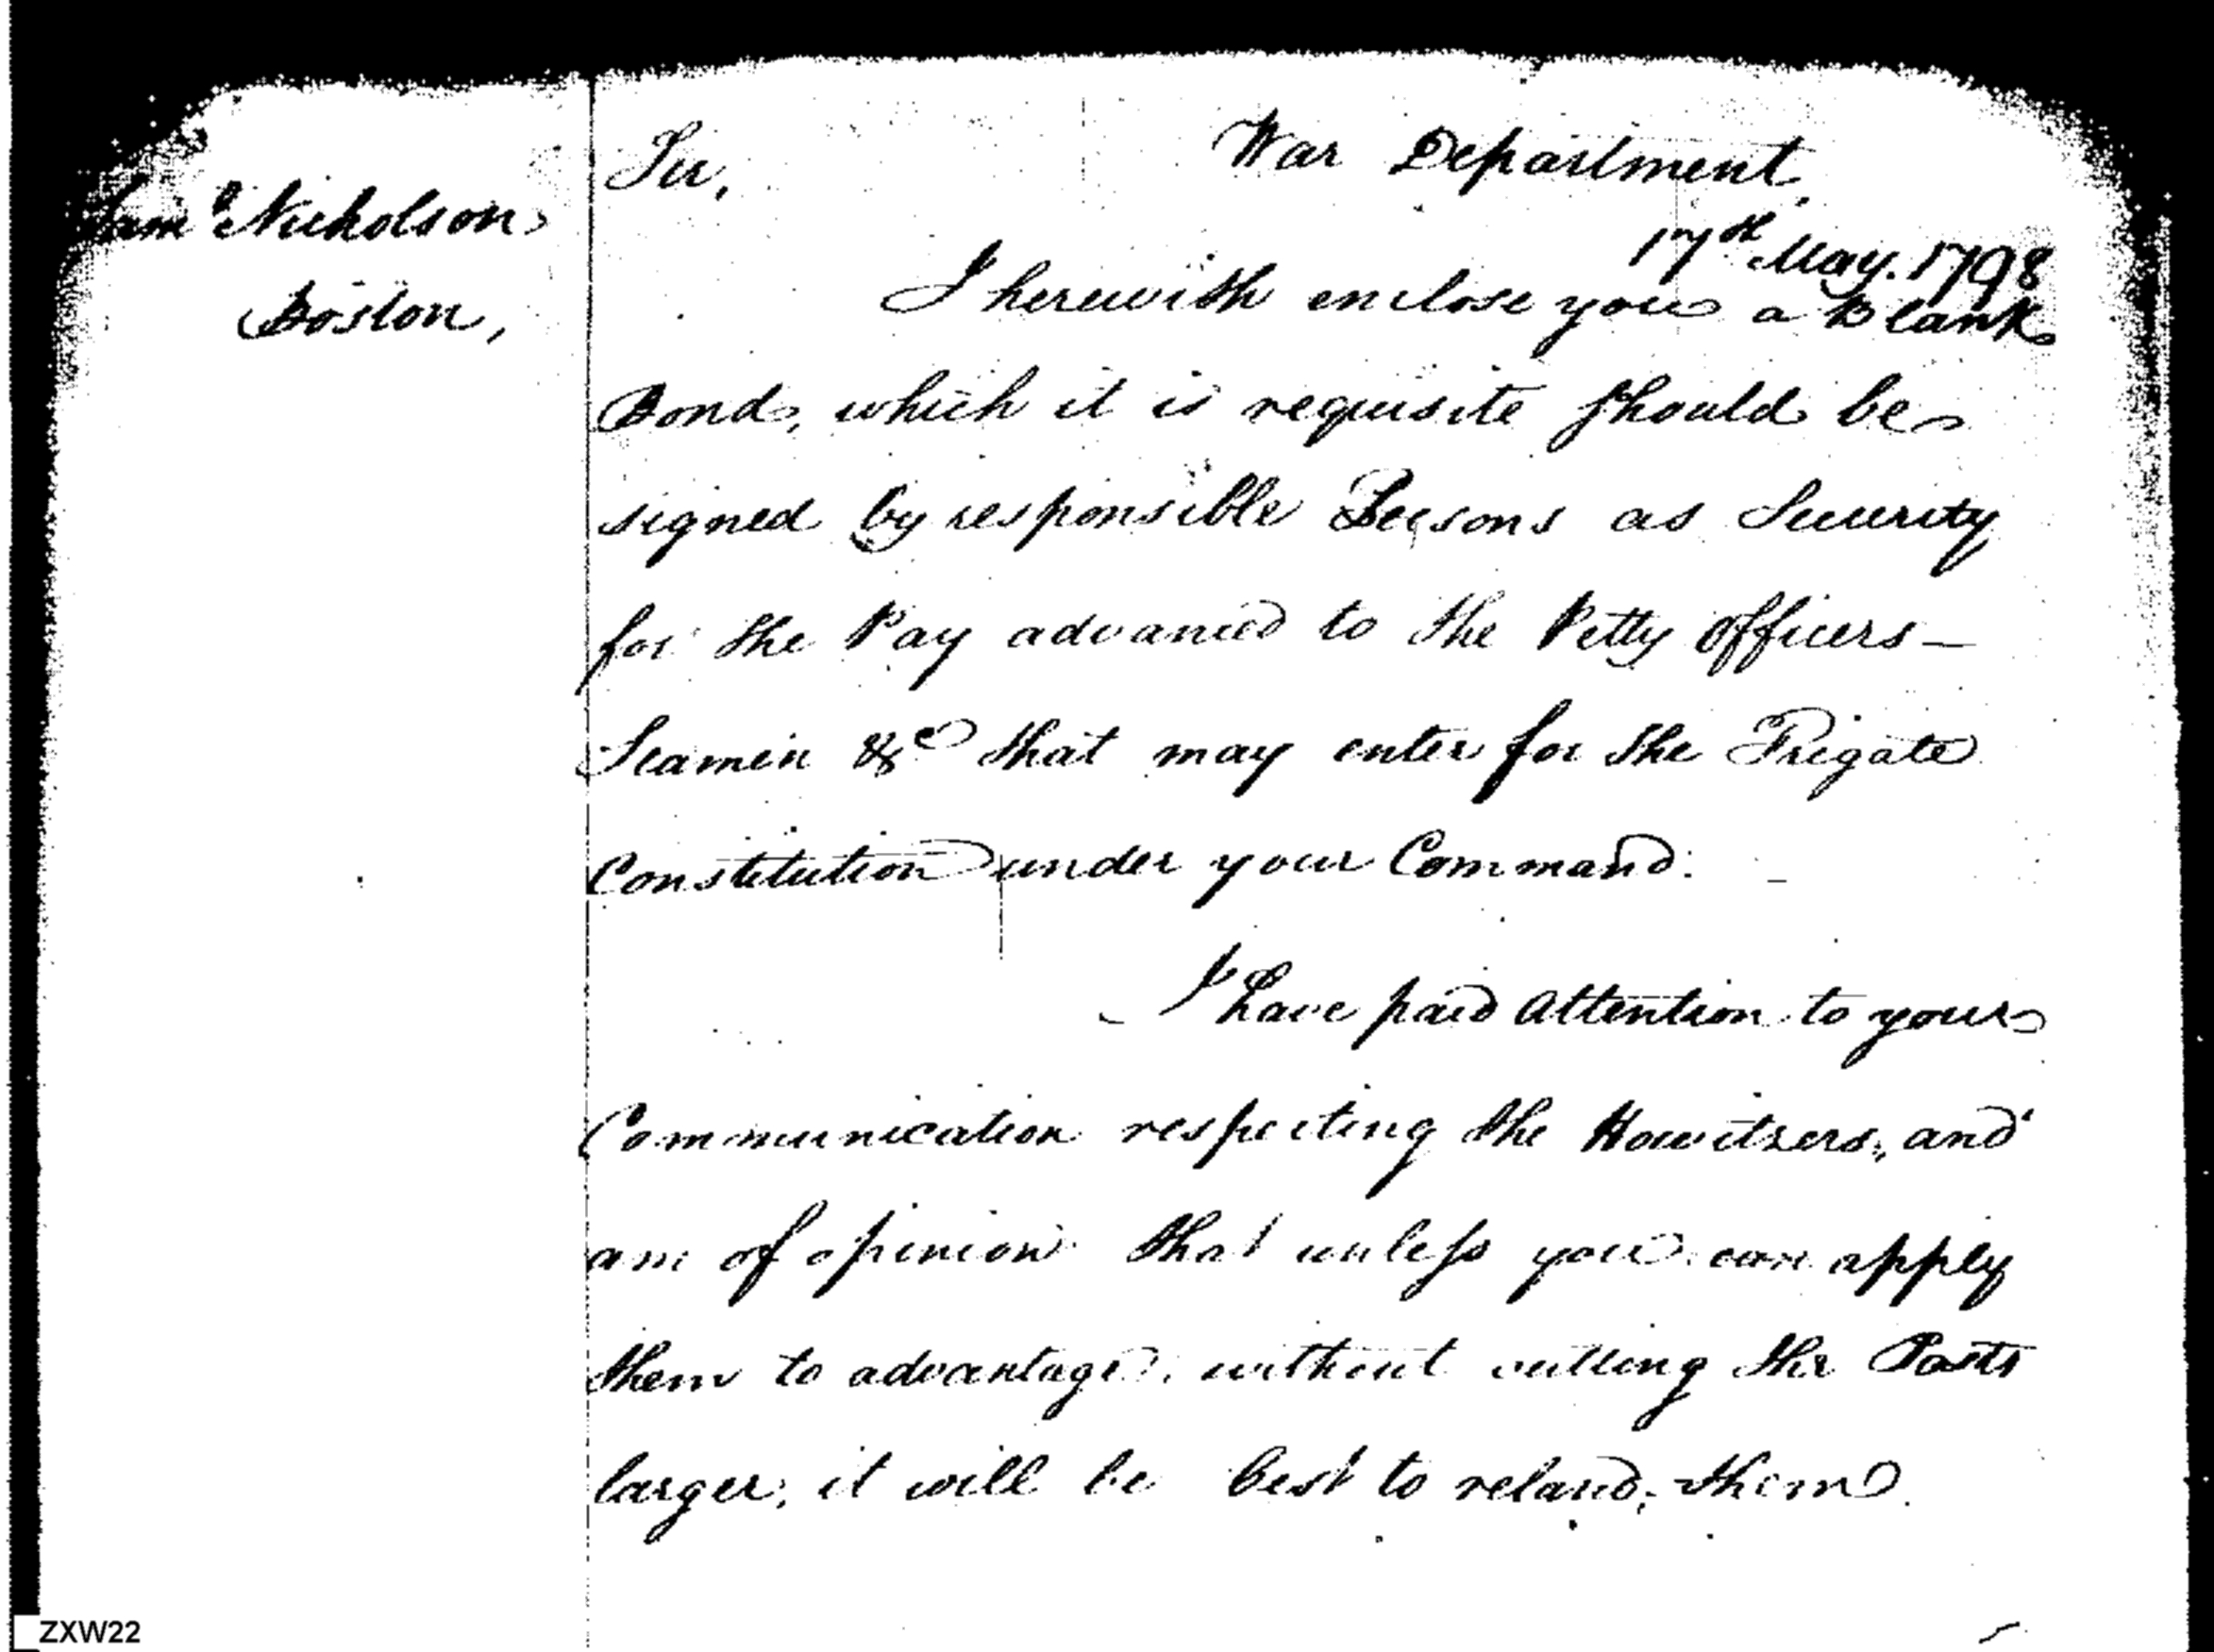 Sam<sup>l</sup> Nicholson
Boston,
Sir,
War Department,
17<sup>th</sup> May. 1798
I herewith enclose you a Blank
Bond, which it is requisite should be
signed by responsible Persons as Security
for the Pay advanced to the Petty officers –
Seamen &c that may enter for the Frigate
Constitution under your Command. –
I have paid Attention to your
Communication respecting the Howitzers, and
am of opinion that unless you can apply
them to advantage, without cutting the Ports
larger, it will be best to reland, them.
ZXW22